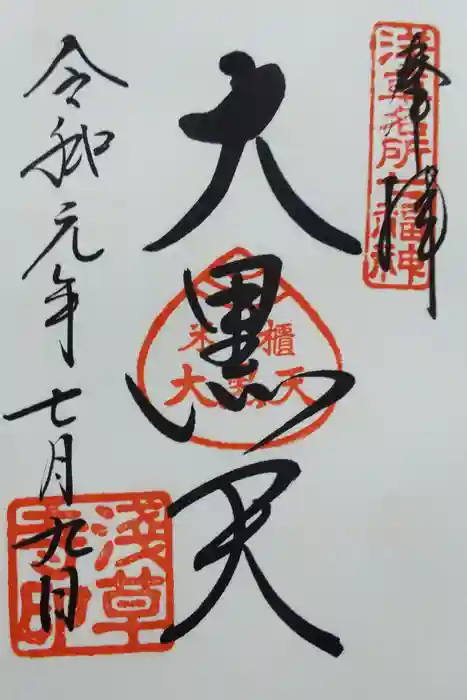 奉拝
浅草名所七福神
大黒天
米櫃
大黒天
令和元年七月九日
浅草寺印